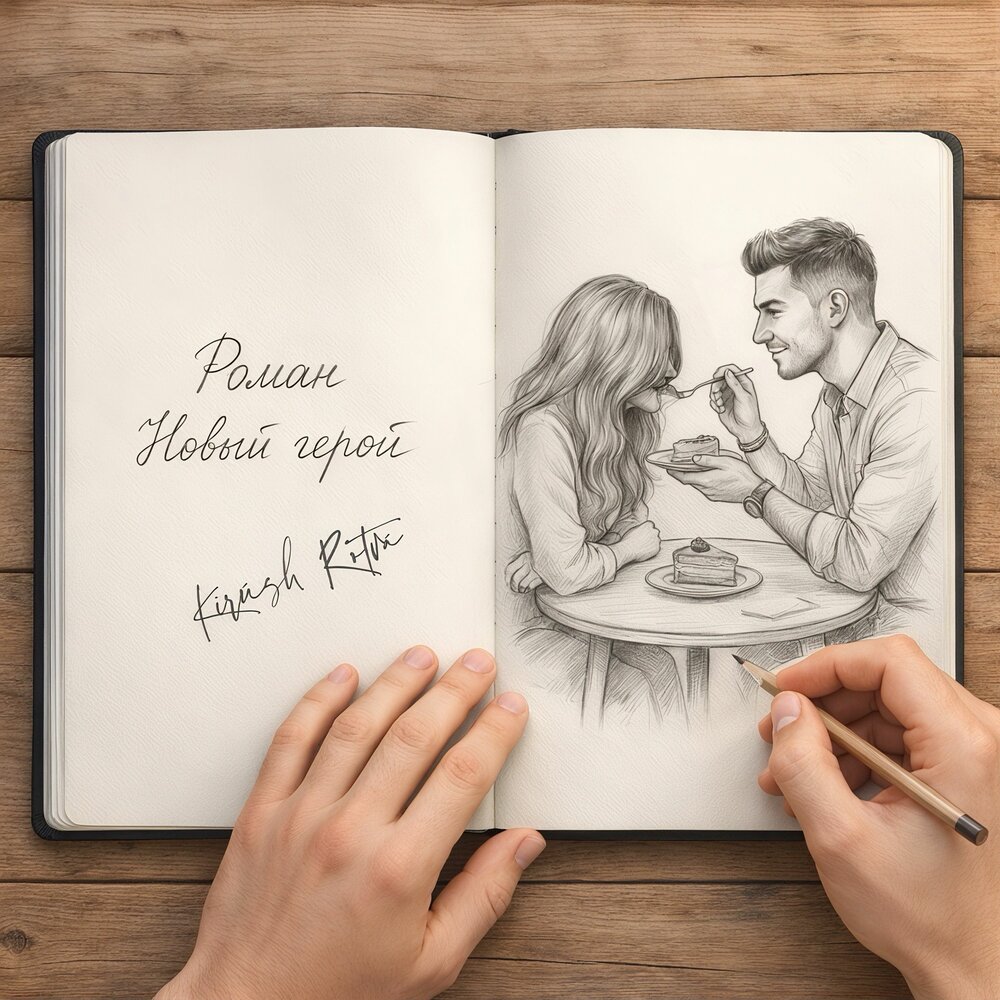 Роман
Новый герой
Kirush Rotva